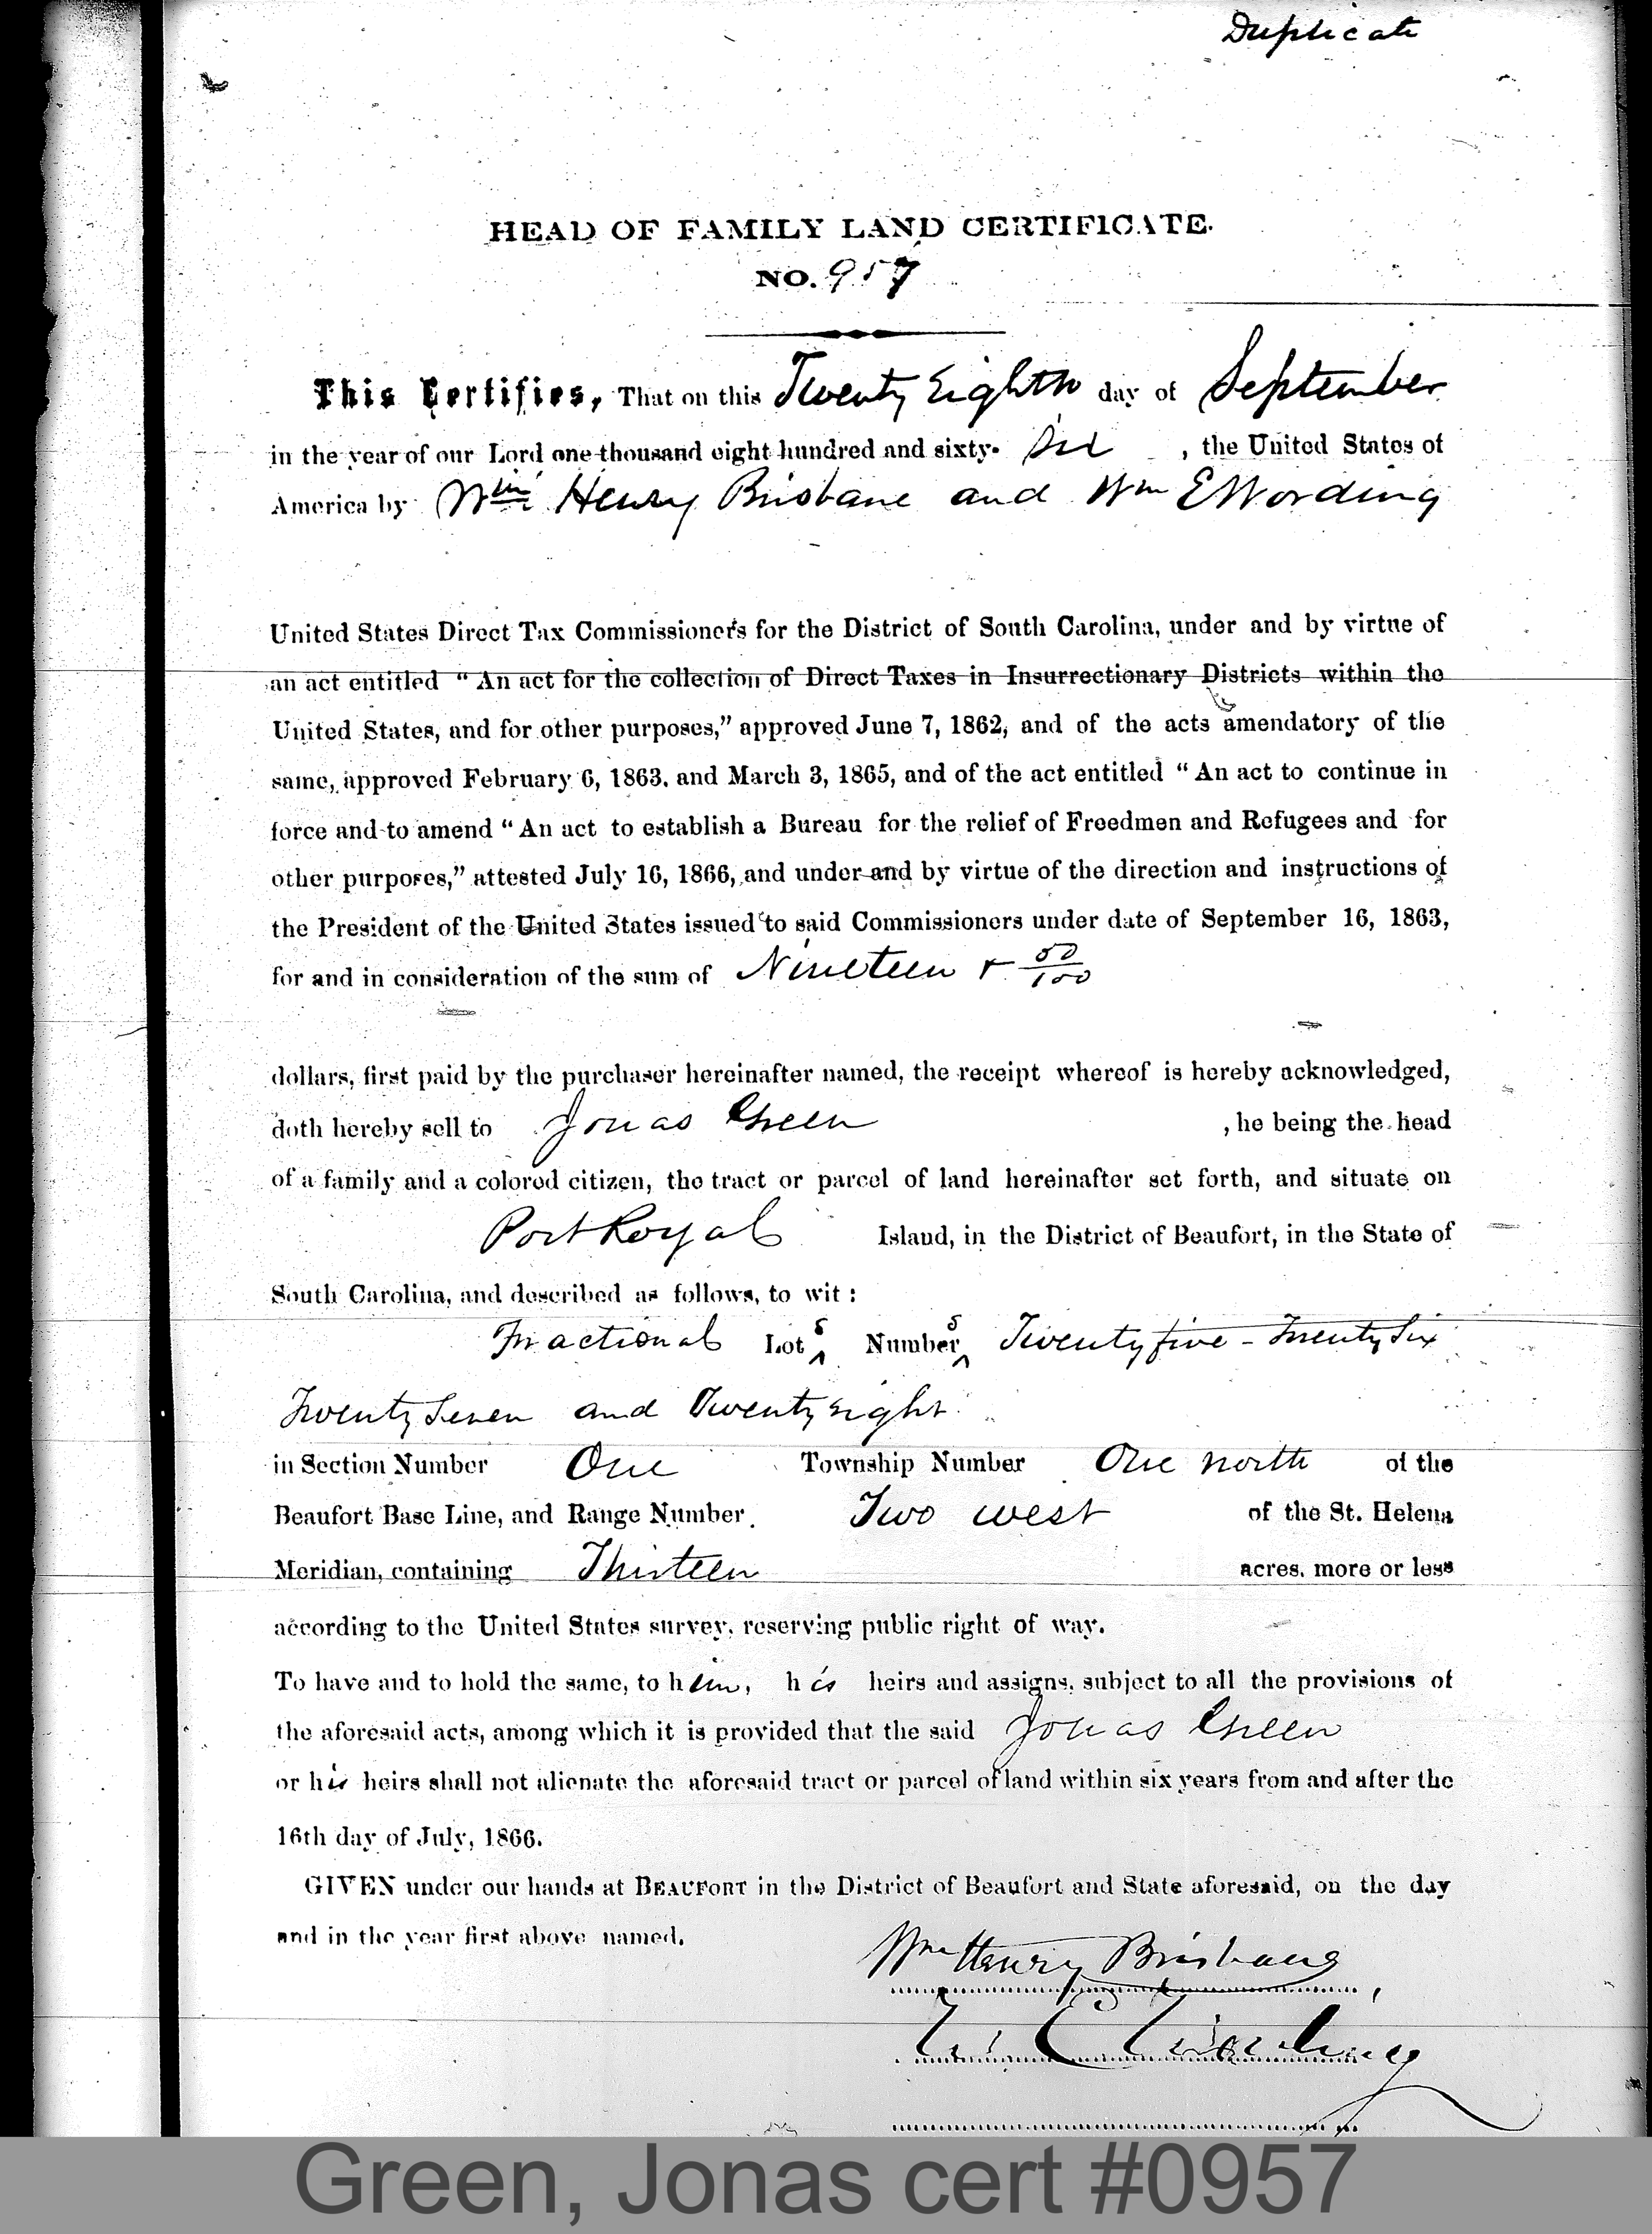 Duplicate
HEAD OF FAMILY LAND CERTIFICATE.
NO. 957
This Certifies, That on this Twenty Eighth day of September
in the year of our Lord one thousand eight hundred and sixty-six, the United States of
America by Wm Henry Brisbane and Wm E Wording
United States Direct Tax Commissioners for the District of South Carolina, under and by virtue of
an act entitled “An act for the collection of Direct Taxes in Insurrectionary Districts within the
United States, and for other purposes,” approved June 7, 1862, and of the acts amendatory of the
same, approved February 6, 1863, and March 3, 1865, and of the act entitled “An act to continue in
force and to amend “An act to establish a Bureau for the relief of Freedmen and Refugees and for
other purposes,” attested July 16, 1866, and under and by virtue of the direction and instructions of
the President of the United States issued to said Commissioners under date of September 16, 1863,
for and in consideration of the sum of Nineteen + 50/100
dollars, first paid by the purchaser hereinafter named, the receipt whereof is hereby acknowledged,
doth hereby sell to Jonas Green, he being the head
of a family and a colored citizen, the tract or parcel of land hereinafter set forth, and situate on
Port Royal Island, in the District of Beaufort, in the State of
South Carolina, and described as follows, to wit:
Fractional Lots Numbers Twenty five - Twenty Six
Twenty Seven and Twenty Eight
in Section Number One Township Number One north of the
Beaufort Base Line, and Range Number Two west of the St. Helena
Meridian, containing Thirteen acres, more or less
according to the United States survey, reserving public right of way.
To have and to hold the same, to him, his heirs and assigns, subject to all the provisions of
the aforesaid acts, among which it is provided that the said Jonas Green
or his heirs shall not alienate the aforesaid tract or parcel of land within six years from and after the
16th day of July, 1866.
GIVEN under our hands at BEAUFORT in the District of Beaufort and State aforesaid, on the day
and in the year first above named.
Wm Henry Brisbane,
W. E. Wording
Green, Jonas cert #0957